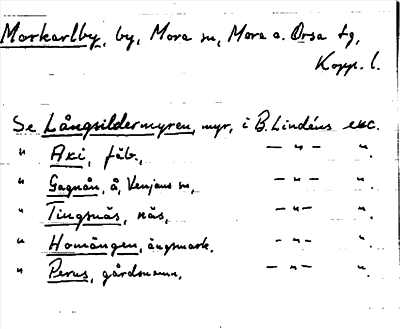 Morkarlby, by, Mora sn, Mora o. Orsa tg,
Kopp. l.
Se Långsildermyren, myr, i B. Lindéns exc.
" Axi, fäb., — " — ".
" Gagnån, å, Venjans sn, — " — ".
" Tingsnäs, näs, — " — ".
" Homängen, ängsmark, — " — ".
" Perus, gårdsnamn, — " — ".